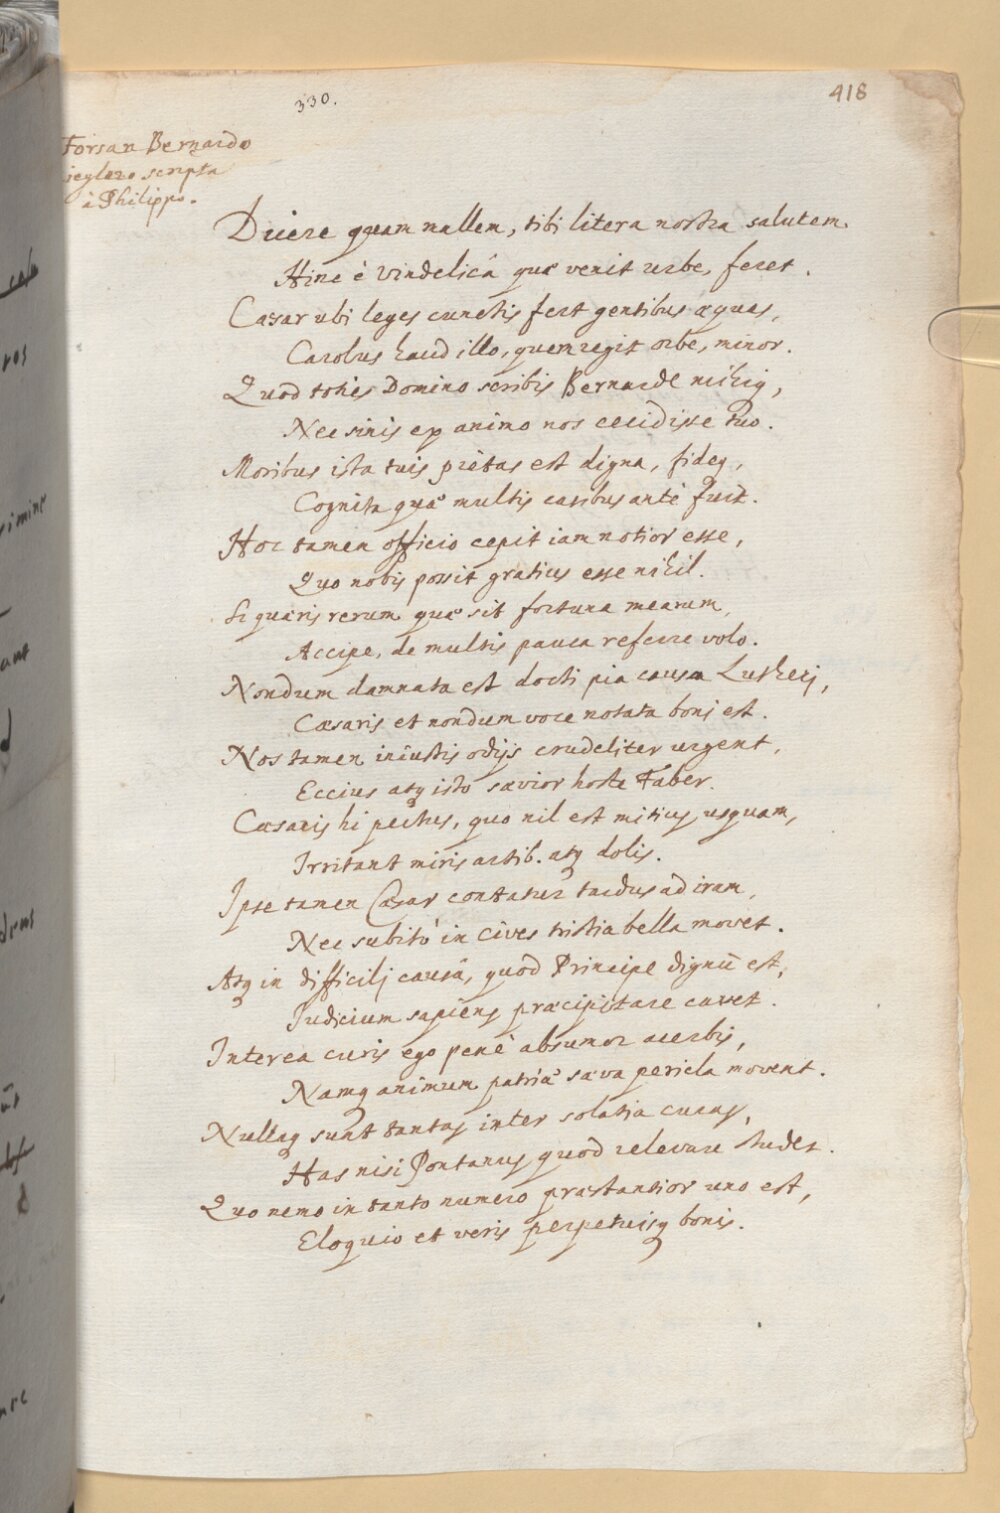 330.
418
Forsan Bernardo
ieglero scripta
à Philippo.
Dicere quam mallem, tibi litera nostra salutem
Hinc è Vindelicâ quæ venit urbe, feret.
Cæsar ubi leges cunctis fert gentibus æquas,
Carolus haud illo, quem regit orbe, minor.
Quod toties Domino scribis Bernarde mihiq,
Nec sinis ex animo nos cecidisse tuo.
Moribus ista tuis pietas est digna, fideq,
Cognita quæ multis casibus antè fuit.
Hoc tamen officio cepit iam notior esse,
Quo nobis possit gratius esse nihil.
Si quæris rerum quæ sit fortuna mearum,
Accipe, de multis pauca referre volo.
Nondum damnata est docti pia causa Lutheri,
Cæsaris et nondum voce notata boni est.
Nos tamen iniustis odijs crudeliter urgent,
Eccius atq isto sævior hoste Faber.
Cæsaris hi pectus, quo nil est mitius usquam,
Irritant miris artib. atq dolis.
Ipse tamen Cæsar contatur tardus ad iram,
Nec subitò in cives tristia bella movet.
Atq in difficili causâ, quod Principe dignū est,
Iudicium sapiens præcipitare cavet.
Interea curis ego penè absumor acerbis,
Namq animum patriæ sæva pericla movent.
Nullaq sunt tantas inter solatia curas,
Has nisi Pontanus quod relevare studet.
Quo nemo in tanto numero præstantior uno est,
Eloquio et veris perpetuisq bonis.